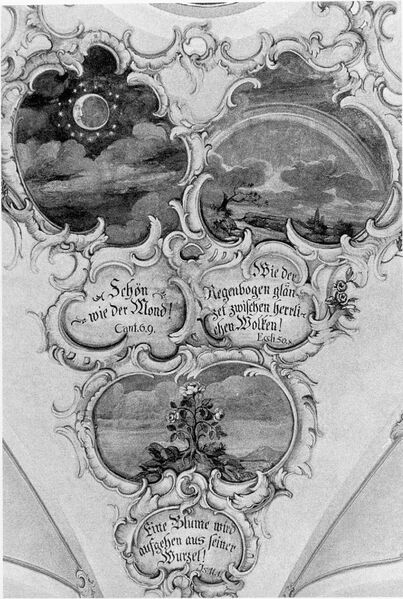 Schön
wie der Mond!
Cant. 6,9.
Wie der
Regenbogen glän-
zet zwischen herrli-
chen Wolken!
Eccli 50,8
Eine Blume wird
aufgehen aus seiner
Wurzel!